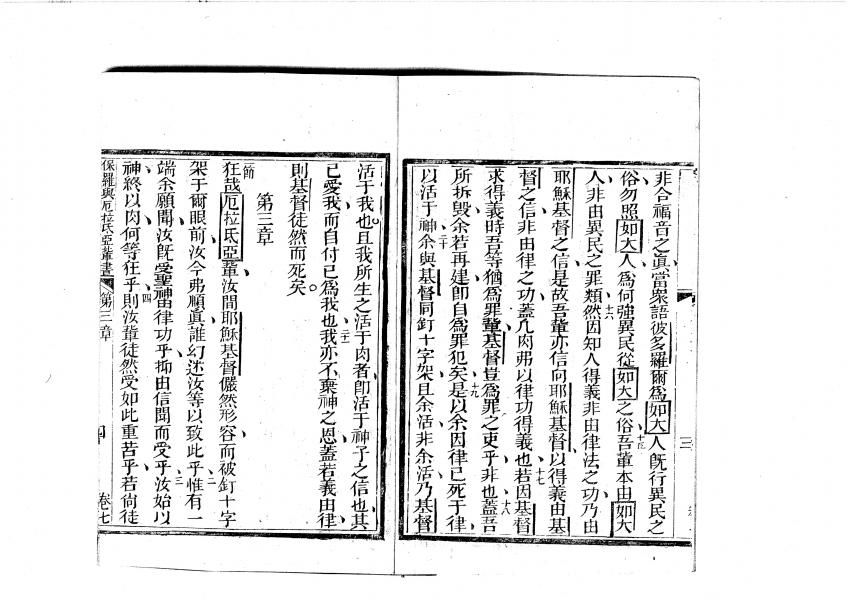 非合福音之眞當衆語彼多羅爾爲如大人旣行異民之
俗勿照如大人爲何強異民從如大之俗吾輩本由如大
人非由異民之罪類然因知人得義非由律法之功乃由
耶穌基督之信是故吾輩亦信向耶穌基督以得義由基
督之信非由律之功蓋凡肉弗以律功得義也若因基督
求得義時吾等猶爲罪輩基督豈爲罪之吏乎非也蓋吾
所拆毀余若再建卽自爲罪犯矣是以余因律已死于律
以活于神余與基督同釘十字架且余活非余活乃基督
活于我也且我所生之活于肉者卽活于神子之信也其
已愛我而自付已爲我也我亦不棄神之恩蓋若義由律
則基督徒然而死矣
第三章
節狂哉厄拉氐亞輩汝間耶穌基督儼然形容而被釘十字
架于爾眼前汝今弗順眞誰幻迷汝等以致此乎惟有一
端余願問汝旣受聖神由律功乎抑由信聞而受乎汝始以
神終以肉何等狂乎則汝輩徒然受如此重苦乎若尙徒
保羅與厄拉氐亞輩書 第三章 四 卷七